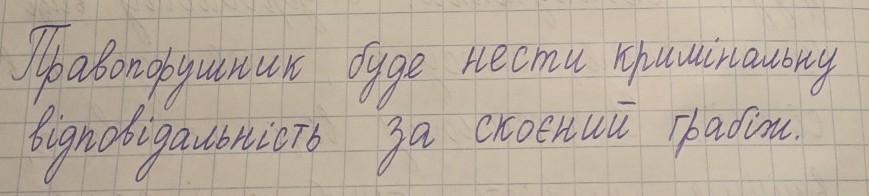 Правопорушник буде нести кримінальну
відповідальність за скоєний грабіж.